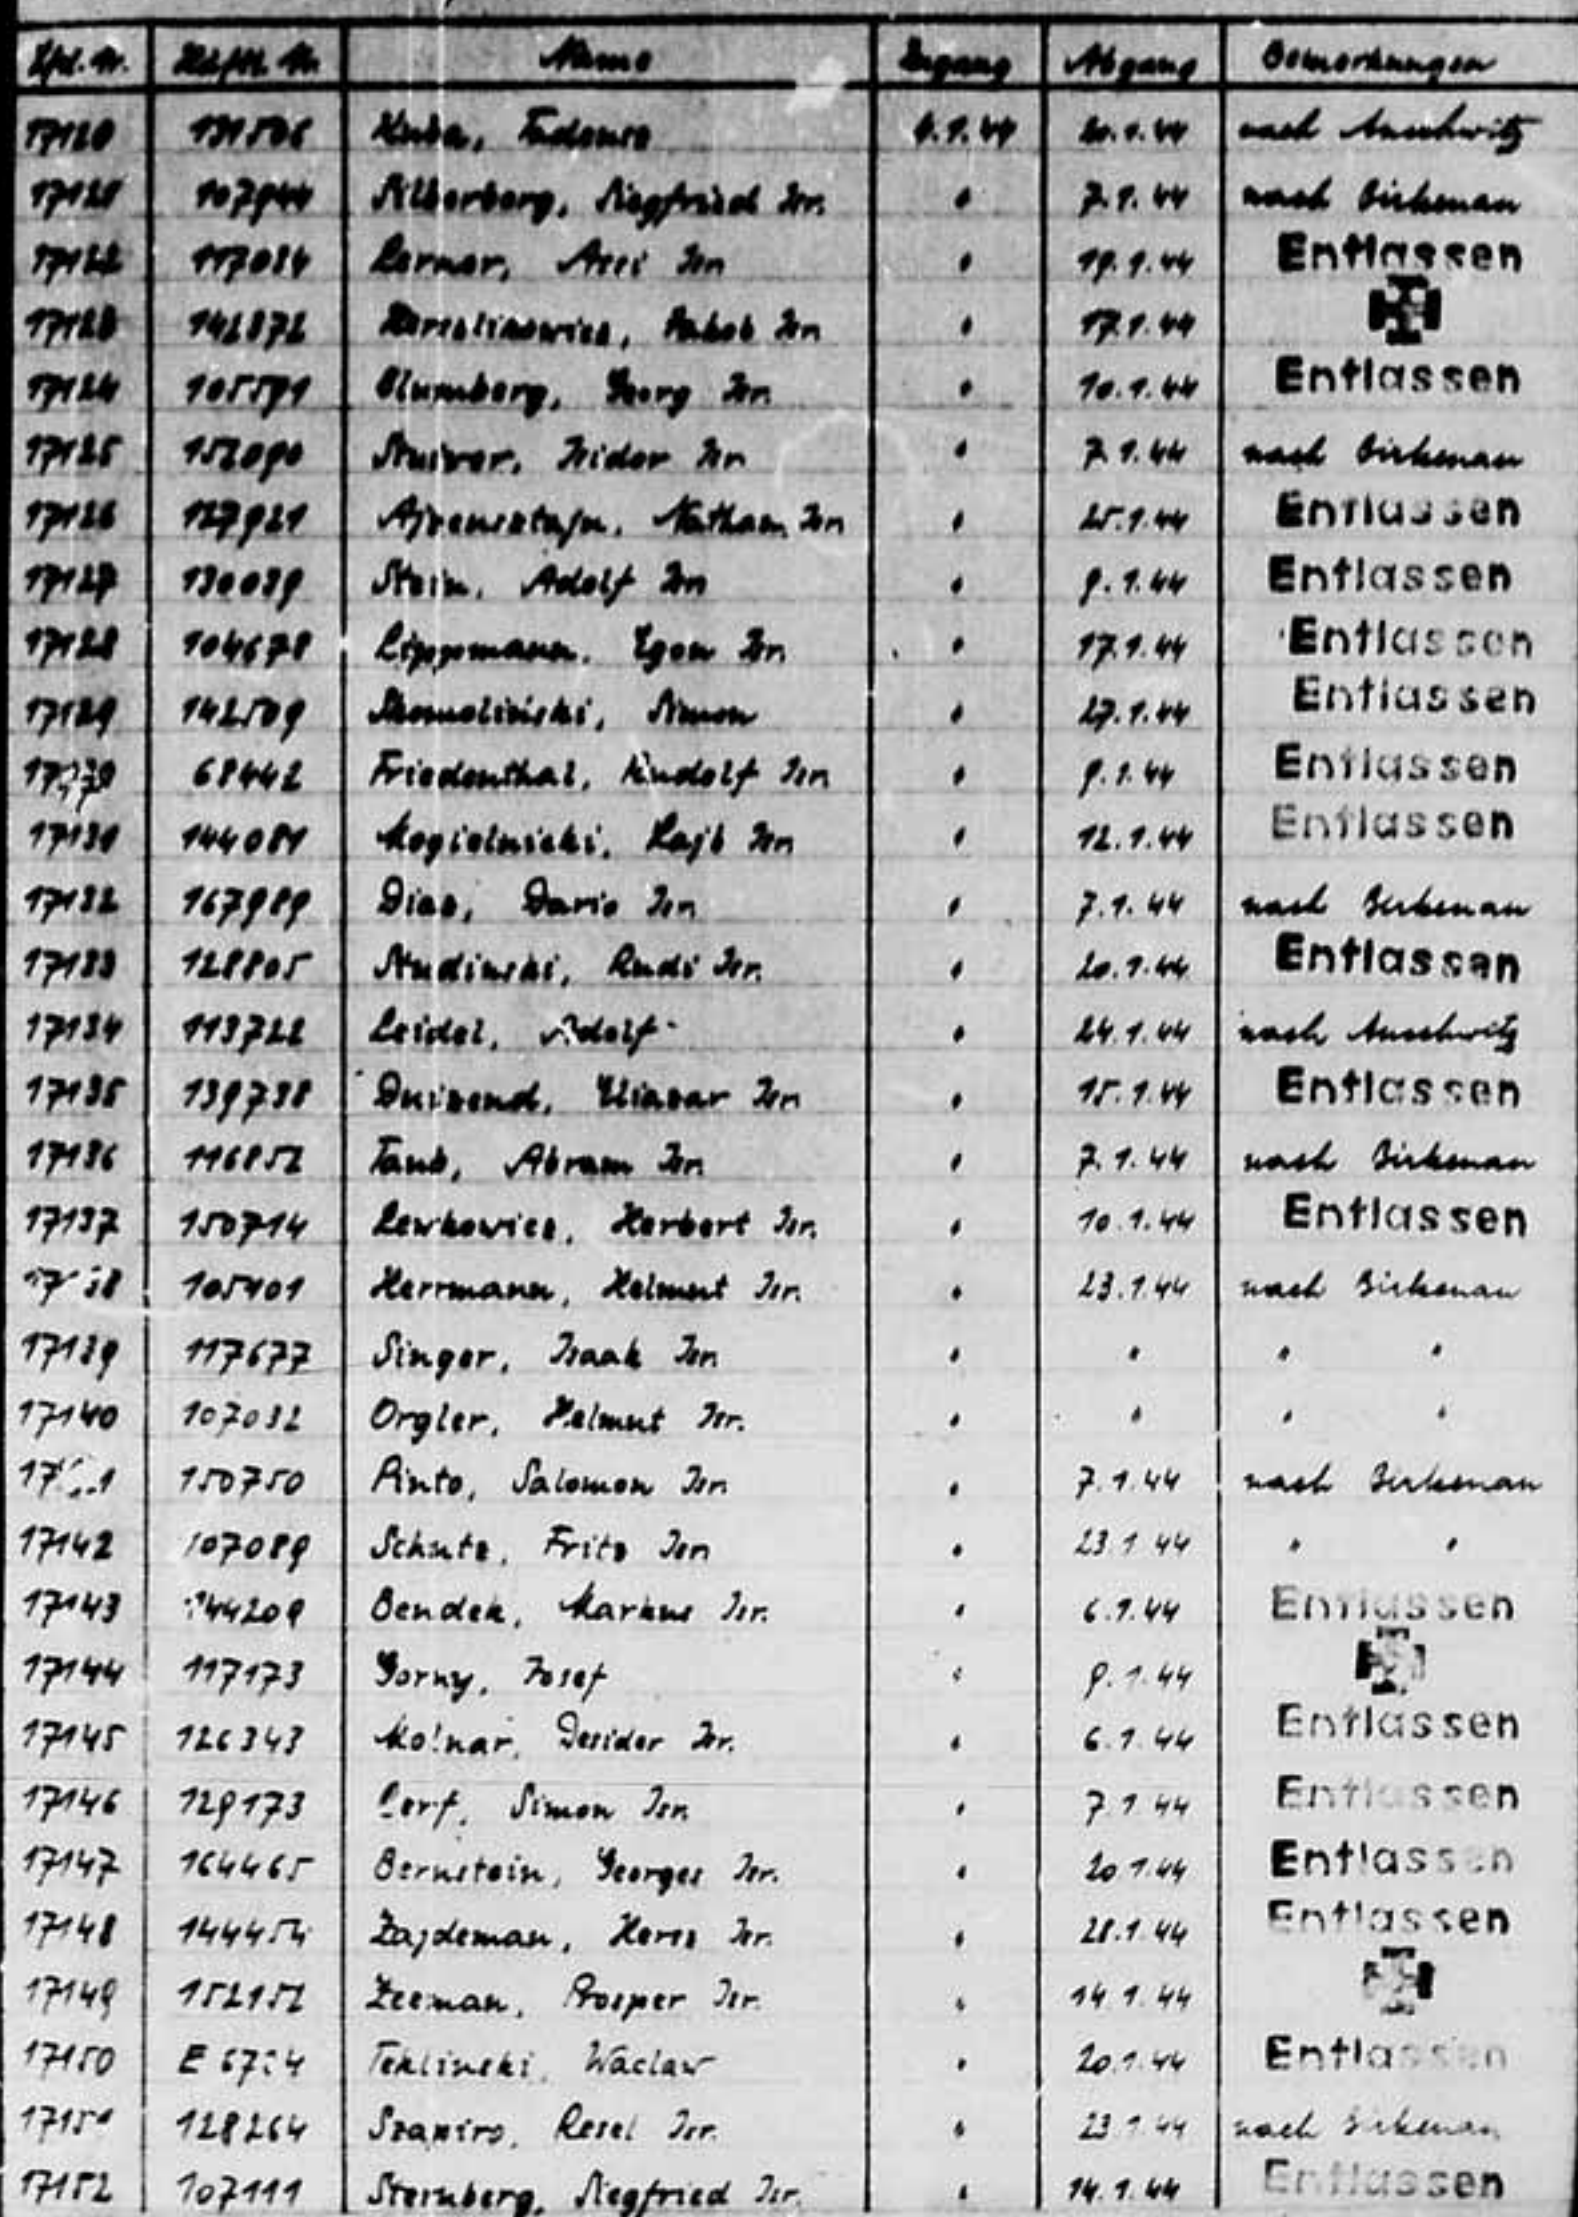 Lfd. Nr. Häftl. Nr. Name Zugang Abgang Bemerkungen
17120 131506 Kuba, 20.1.44 nach Auschwitz
17121 107944 Silberberg, Siegfried Isr. " 7.1.44 nach Birkenau
17122 117034 Lerner, Isr. " 19.1.44 Entlassen
17123 142872 Isr. " 17.1.44
17124 105591 Blumberg, Georg Isr. " 10.1.44 Entlassen
17125 152090 Stuiver, Isidor Isr. " 7.1.44 nach Birkenau
17126 127921 Nathan Isr. " 25.1.44 Entlassen
17127 130039 Stein, Adolf Isr. " 9.1.44 Entlassen
17128 104678 Lippmann, Egon Isr. " 17.1.44 Entlassen
17129 142509 Simon " 27.1.44 Entlassen
68442 Friedenthal, Rudolf Isr. " 9.1.44 Entlassen
17131 144081 Mogielnicki, Lajb Isr. " 12.1.44 Entlassen
17132 167989 Dias, Dario Isr. " 7.1.44 nach Birkenau
17133 128805 Studinski, Rudi Isr. " 20.1.44 Entlassen
17134 113722 Leidel, Adolf " 24.1.44 nach Auschwitz
17135 139738 Duizend, Eliazar Isr. " 15.1.44 Entlassen
17136 116852 Taub, Abram Isr. " 7.1.44 nach Birkenau
17137 150714 Lewkowicz, Herbert Isr. " 10.1.44 Entlassen
105401 Herrmann, Helmut Isr. " 23.1.44 nach Birkenau
17139 117677 Singer, Isaak Isr. " " " "
17140 107032 Orgler, Helmut Isr. " " " "
150750 Pinto, Salomon Isr. " 7.1.44 nach Birkenau
17142 107089 Schutz, Fritz Isr. " 23.1.44 " "
17143 144209 Bendek, Markus Isr. " 6.1.44 Entlassen
17144 117173 Gorny, Josef " 9.1.44
17145 126343 Molnar, Desider Isr. " 6.1.44 Entlassen
17146 129173 Cerf, Simon Isr. " 7.1.44 Entlassen
17147 164465 Bernstein, Georges Isr. " 20.1.44 Entlassen
17148 144454 Zajdeman, Hersz Isr. " 28.1.44 Entlassen
17149 152152 Zeeman, Prosper Isr. " 14.1.44
17150 Teklinski, Waclaw " 20.1.44 Entlassen
17151 128264 Szapiro, Resel Isr. " 23.1.44 nach Birkenau
17152 107111 Sternberg, Siegfried Isr. " 14.1.44 Entlassen